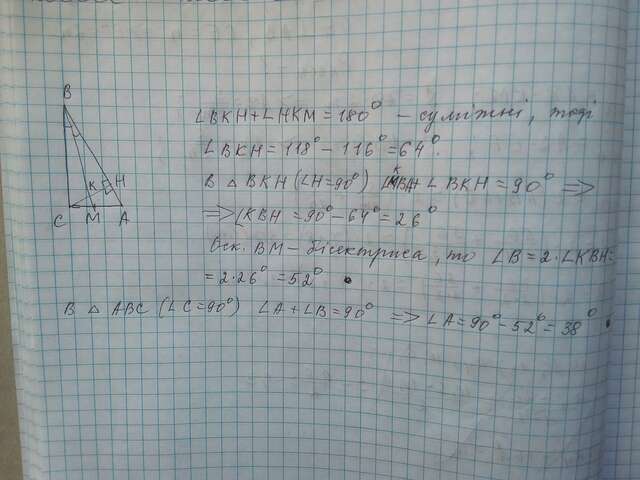 B
K H
C M A
∠BKH+∠HKM=180° – суміжні, тоді
∠BKH=118°–116°=64°.
В △ BKH (∠H=90°) ∠KBH+∠BKH=90° =>
=> ∠KBH=90°–64°=26°
Оск. BM – бісектриса, то ∠B=2·∠KBH=
=2·26°=52°.
В △ ABC (∠C=90°) ∠A+∠B=90° => ∠A=90°–52°=38°.